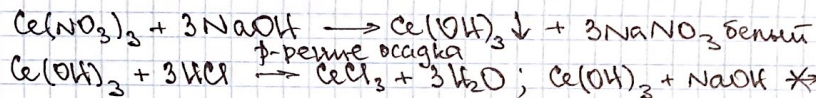 Ce(NO₃)₃ + 3NaOH → Ce(OH)₃↓ + 3NaNO₃ белый
р-рение осадка
Ce(OH)₃ + 3HCl → CeCl₃ + 3H₂O ; Ce(OH)₃ + NaOH ↛